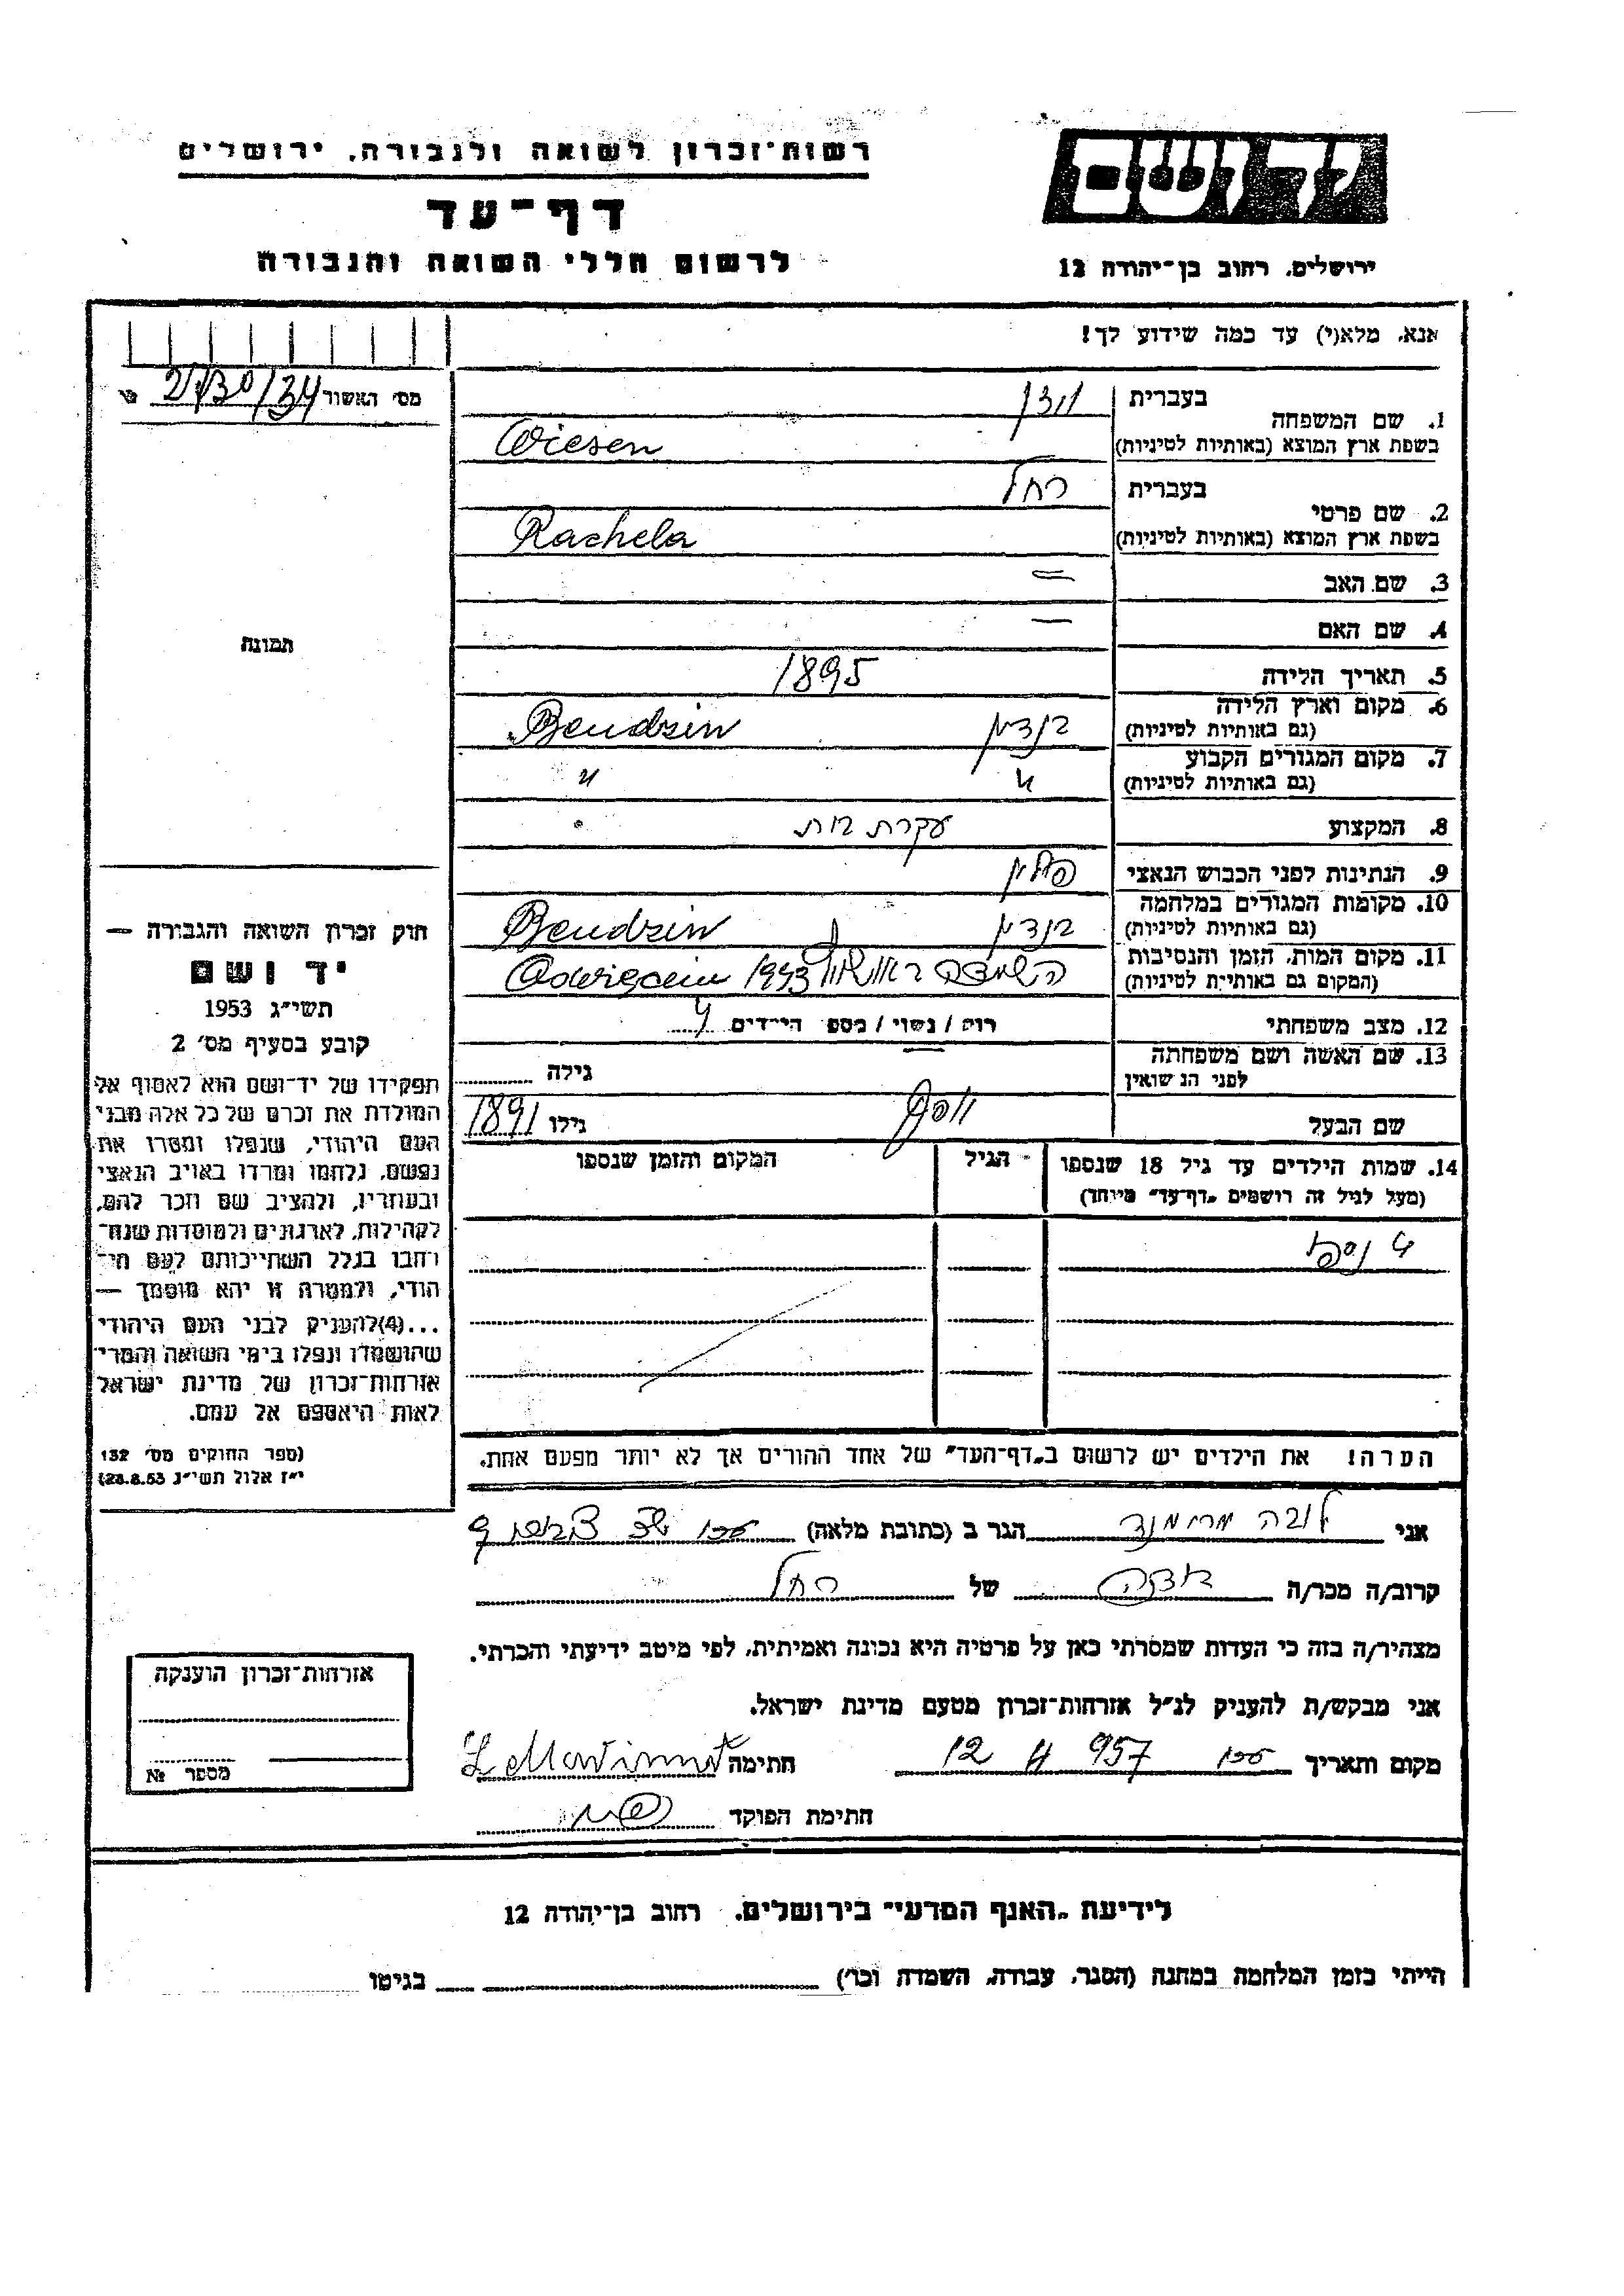 רשות־זכרון לשואה ולגבורה, ירושלים
דף־עד
לרשום חללי השואה והגבורה
יד ושם
ירושלים, רחוב בן־יהודה 12
אנא, מלא(י) עד כמה שידוע לך!
מס׳ האשור
1. שם המשפחה
בעברית
בשפת ארץ המוצא (באותיות לטיניות) Wiesen
2. שם פרטי
בעברית רחל
בשפת ארץ המוצא (באותיות לטיניות) Rachela
3. שם האב —
4. שם האם —
5. תאריך הלידה 1895
6. מקום וארץ הלידה בנדין Bendzin
(גם באותיות לטיניות)
7. מקום המגורים הקבוע " "
(גם באותיות לטיניות)
8. המקצוע עקרת בית
9. הנתינות לפני הכבוש הנאצי פולין
10. מקומות המגורים במלחמה בנדין Bendzin
(גם באותיות לטיניות)
11. מקום המות, הזמן והנסיבות 1943
(המקום גם באותיות לטיניות)
12. מצב משפחתי רוק / נשוי / מספר הילדים
13. שם האשה ושם משפחתה
לפני הנישואין
גילה
שם הבעל יוסף גילו 1891
14. שמות הילדים עד גיל 18 שנספו
(מעל לגיל זה רושמים „דף־עד" מיוחד)
הגיל
המקום והזמן שנספו
הערה! את הילדים יש לרשום ב„דף־העד" של אחד ההורים אך לא יותר מפעם אחת.
תמונה
חוק זכרון השואה והגבורה —
יד ושם
תשי״ג 1953
קובע בסעיף מס׳ 2
תפקידו של יד־ושם הוא לאסוף אל
המולדת את זכרם של כל אלה מבני
העם היהודי, שנפלו ומסרו את
נפשם, נלחמו ומרדו באויב הנאצי
ובעוזריו, ולהציב שם וזכר להם,
לקהילות, לארגונים ולמוסדות שנח־
רחבו בגלל השתייכותם לעם הי־
הודי, ולמטרה זו יהא מוסמך —
...(4) להעניק לבני העם היהודי
שהושמדו ונפלו בימי השואה והמרי
אזרחות־זכרון של מדינת ישראל
לאות היאספם אל עמם.
(ספר החוקים מס׳ 132
י״ז אלול תשי״ג 28.8.53)
אני לובה הגר ב (כתובת מלאה)
קרוב/ה מכר/ה של רחל
מצהיר/ה בזה כי העדות שמסרתי כאן על פרטיה היא נכונה ואמיתית, לפי מיטב ידיעתי והכרתי.
אני מבקש/ת להעניק לנ״ל אזרחות־זכרון מטעם מדינת ישראל.
מקום ותאריך 12 957 חתימה
חתימת הפוקד
אזרחות־זכרון הוענקה
מספר №
לידיעת „האגף המדעי" בירושלים, רחוב בן־יהודה 12
הייתי בזמן המלחמה במחנה (הסגר, עבודה, השמדה וכו׳) בגיטו